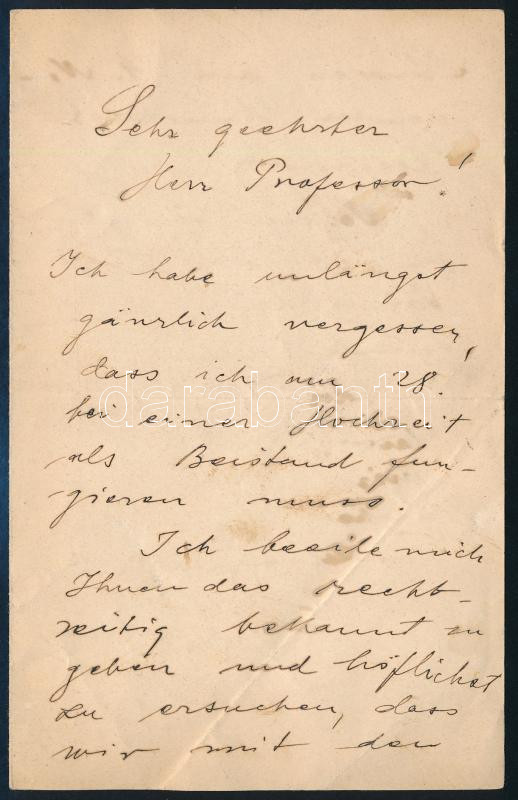 Sehr geehrter
Herr Professor!
Ich habe unlängst
gänzlich vergessen,
dass ich am 28.
bei einer Hochzeit
als Beistand fun-
gieren muss.
Ich beeile mich
Ihnen das recht-
zeitig bekannt zu
geben und höflichst
zu ersuchen, dass
wir mit den
darabanth